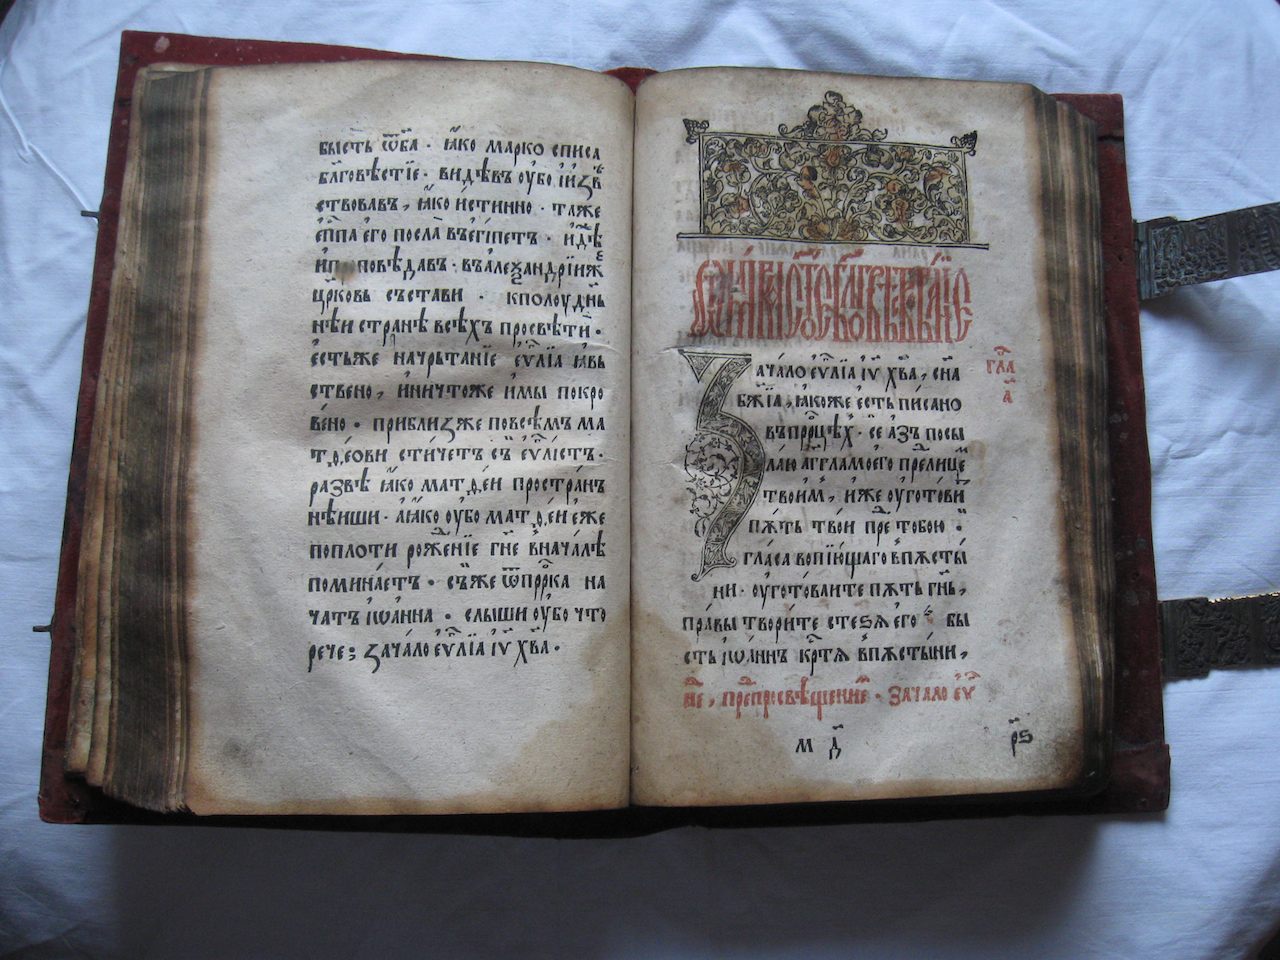 бысть ѿба · ꙗко марко списа
блговѣстїе · видѣвъ оубо иизвѣ
ствовавъ, ꙗко истинно · таже
еппа его посла въегѵпетъ · идѣ
же
проповѣдавъ · въалеѯандрїи
црковь състави · кполоуднь
нѣи странѣ всѣхъ просвѣти ·
естьже начрьтанїе еѵлїа ꙗвь
ствено, иничтоже имы покро
вено · приближже повсемъ ма
тѳеови стичетъ съ еѵлистъ ·
развѣ ꙗко матѳеи пространъ
нѣиши · аꙗко оубо матѳеи еже
поплоти рожение гне вначалѣ
поминаетъ · съиже ѿпррка на
чатъ іѡанна · слыши оубо что
рече; зачало еѵлїа іѵ хва ·
Зачало еѵлїа іѵ хва, сна
бжїа, ꙗкоже есть писано
въпррцѣх · се азъ посы
лаю аггламоего прелицем
твоим, иже оуготови
пѫть твои пре тобою ·
гласа вопиющаго впѫсты
ни · оуготоваите пѫть гнь,
правы творите стеѕѧ его · бы
сть іѡаннъ кртѧ впѫстыни,
не, препросвѣщение · зачало еѵ
гла
а
м д
рѕ